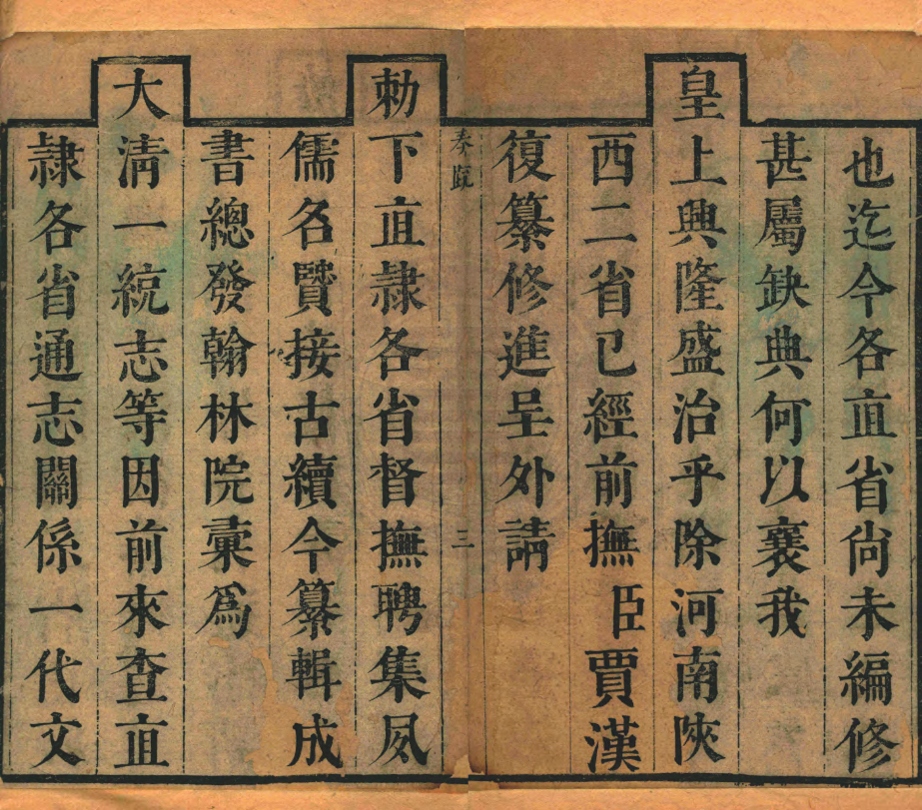 也迄今各直省尙未編修
甚屬缺典何以襄我
皇上興隆盛治乎除河南陝
西二省已經前撫臣賈漢
復纂修進呈外請
奏疏 三
勅下直隷各省督撫聘集夙
儒名賢接古續今纂輯成
書總發翰林院彙爲
大淸一統志等因前來查直
隷各省通志關係一代文